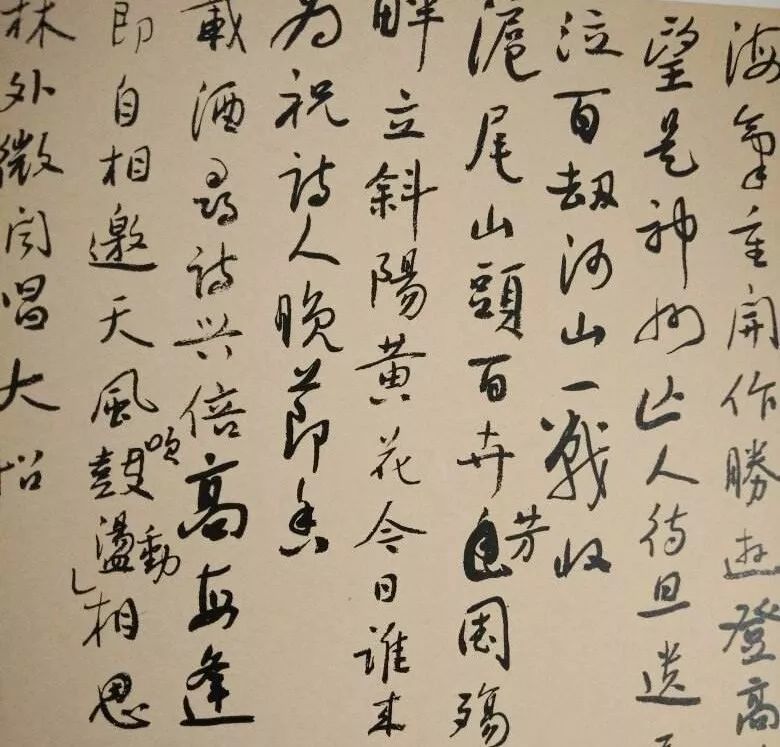 海重開作勝遊登高
望是神州人待旦遺
泣百劫河山一戰收
滬尾山頭百卉芳國殤
畔立斜陽黃花今日誰來
為祝詩人晚節香
載酒尋詩興倍高每逢
即自相邀天風鼓吹盪動相思
林外微聞唱大招